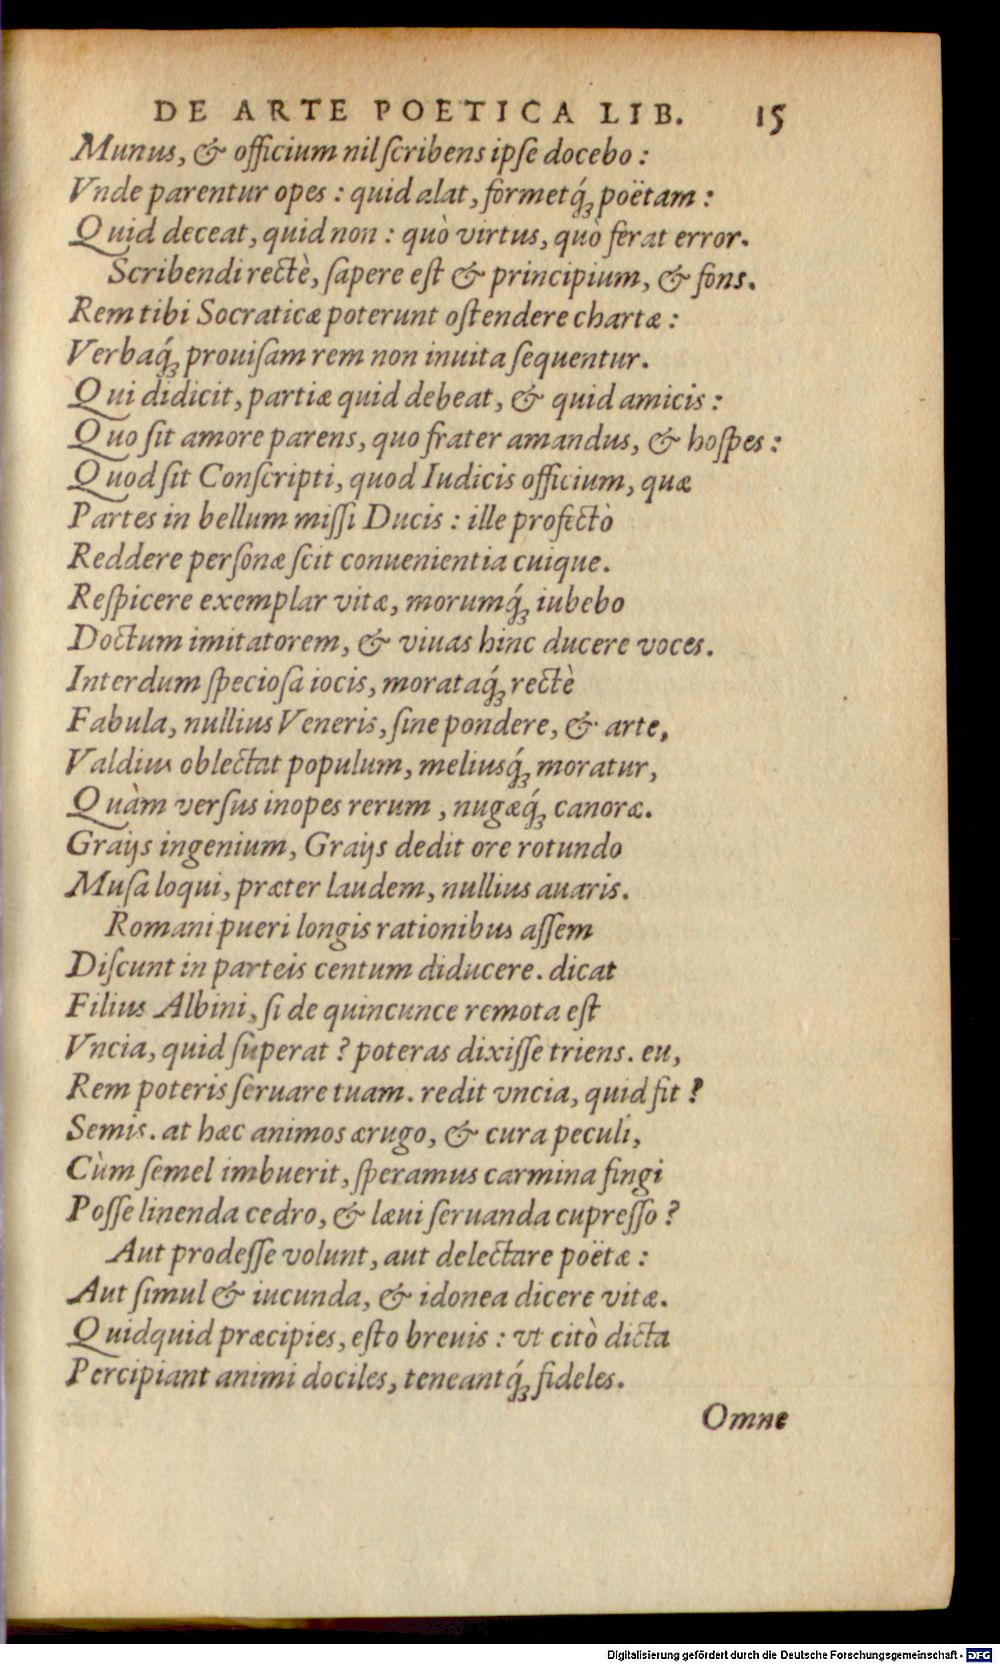 DE ARTE POETICA LIB. 15
Munus, & officium nil ſcribens ipſe docebo :
Vnde parentur opes : quid alat, formetq́ꝫ poëtam :
Quid deceat, quid non : quò virtus, quò ferat error.
Scribendi rectè, ſapere eſt & principium, & fons.
Rem tibi Socraticæ poterunt oſtendere chartæ :
Verbaq́ꝫ prouiſam rem non inuita ſequentur.
Qui didicit, partiæ quid debeat, & quid amicis :
Quo ſit amore parens, quo frater amandus, & hoſpes :
Quod ſit Conſcripti, quod Iudicis officium, quæ
Partes in bellum miſſi Ducis : ille profectò
Reddere perſonæ ſcit conuenientia cuique.
Reſpicere exemplar vitæ, morumq́ꝫ iubebo
Doctum imitatorem, & viuas hinc ducere voces.
Interdum ſpecioſa iocis, morataq́ꝫ rectè
Fabula, nullius Veneris, ſine pondere, & arte,
Valdius oblectat populum, meliusq́ꝫ moratur,
Quàm verſus inopes rerum, nugæq́ꝫ canoræ.
Graijs ingenium, Graijs dedit ore rotundo
Muſa loqui, præter laudem, nullius auaris.
Romani pueri longis rationibus aſſem
Diſcunt in parteis centum diducere. dicat
Filius Albini, ſi de quincunce remota eſt
Vncia, quid ſuperat ? poteras dixiſſe triens. eu,
Rem poteris ſeruare tuam. redit vncia, quid fit ?
Semis. at hæc animos ærugo, & cura peculi,
Cùm ſemel imbuerit, ſperamus carmina fingi
Poſſe linenda cedro, & læui ſeruanda cupreſſo ?
Aut prodeſſe volunt, aut delectare poëtæ :
Aut ſimul & iucunda, & idonea dicere vitæ.
Quidquid præcipies, eſto breuis : vt citò dicta
Percipiant animi dociles, teneantq́ꝫ fideles.
Omne
Digitalisierung gefördert durch die Deutsche Forschungsgemeinschaft - DFG